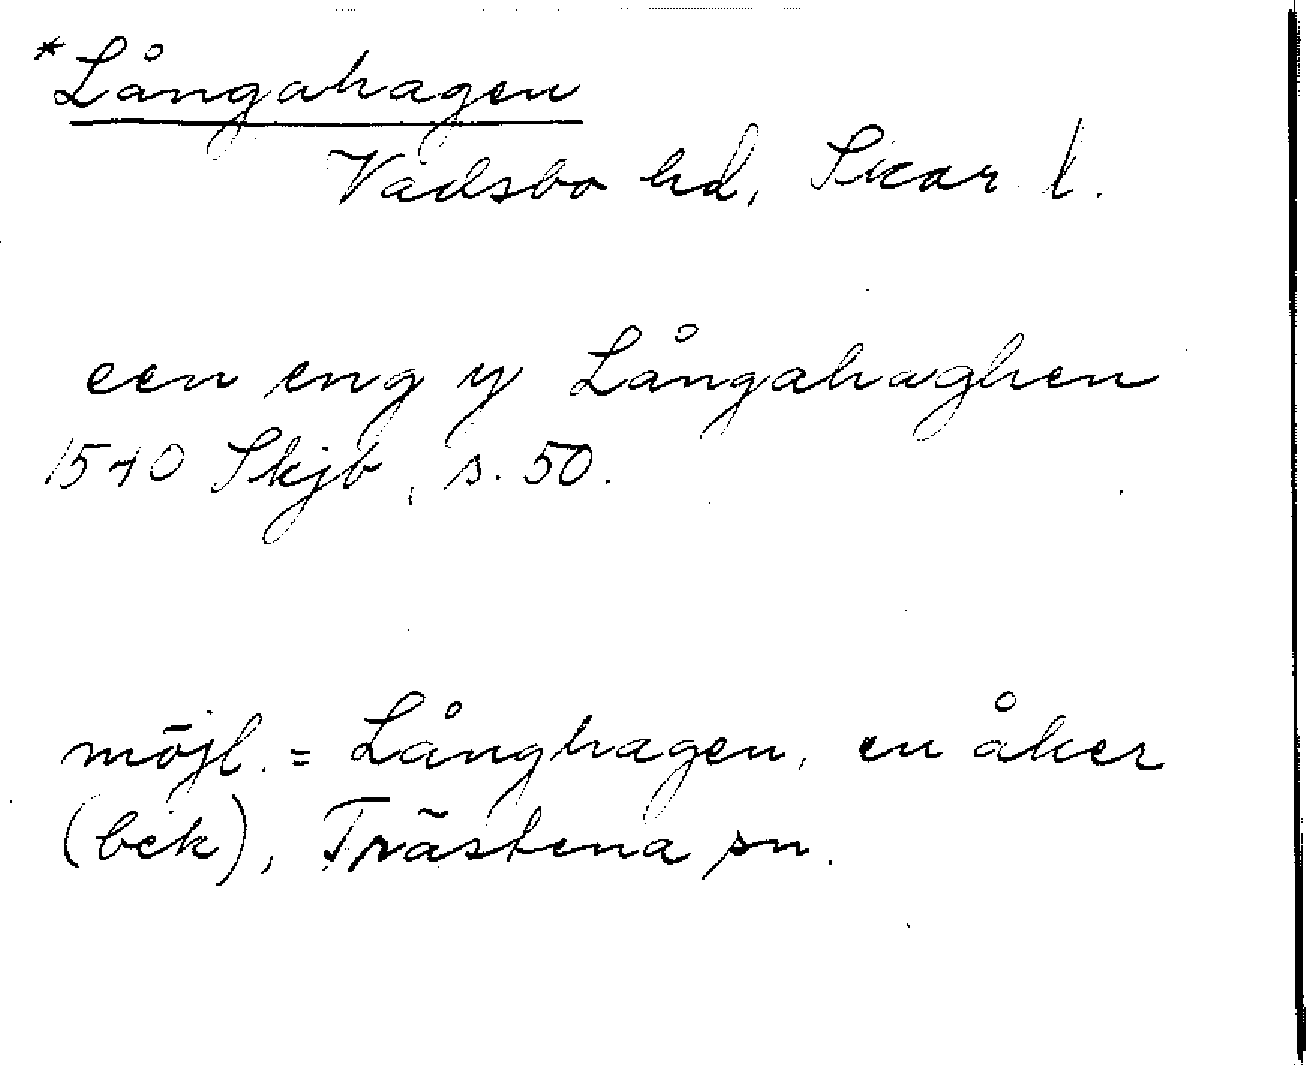 *Långahagen
Vadsbo hd, Skar. l.
een eng y Långahaghen
1540 Skjb, s. 50.
möjl. = Långhagen, en åker
(bek), Trästena sn.